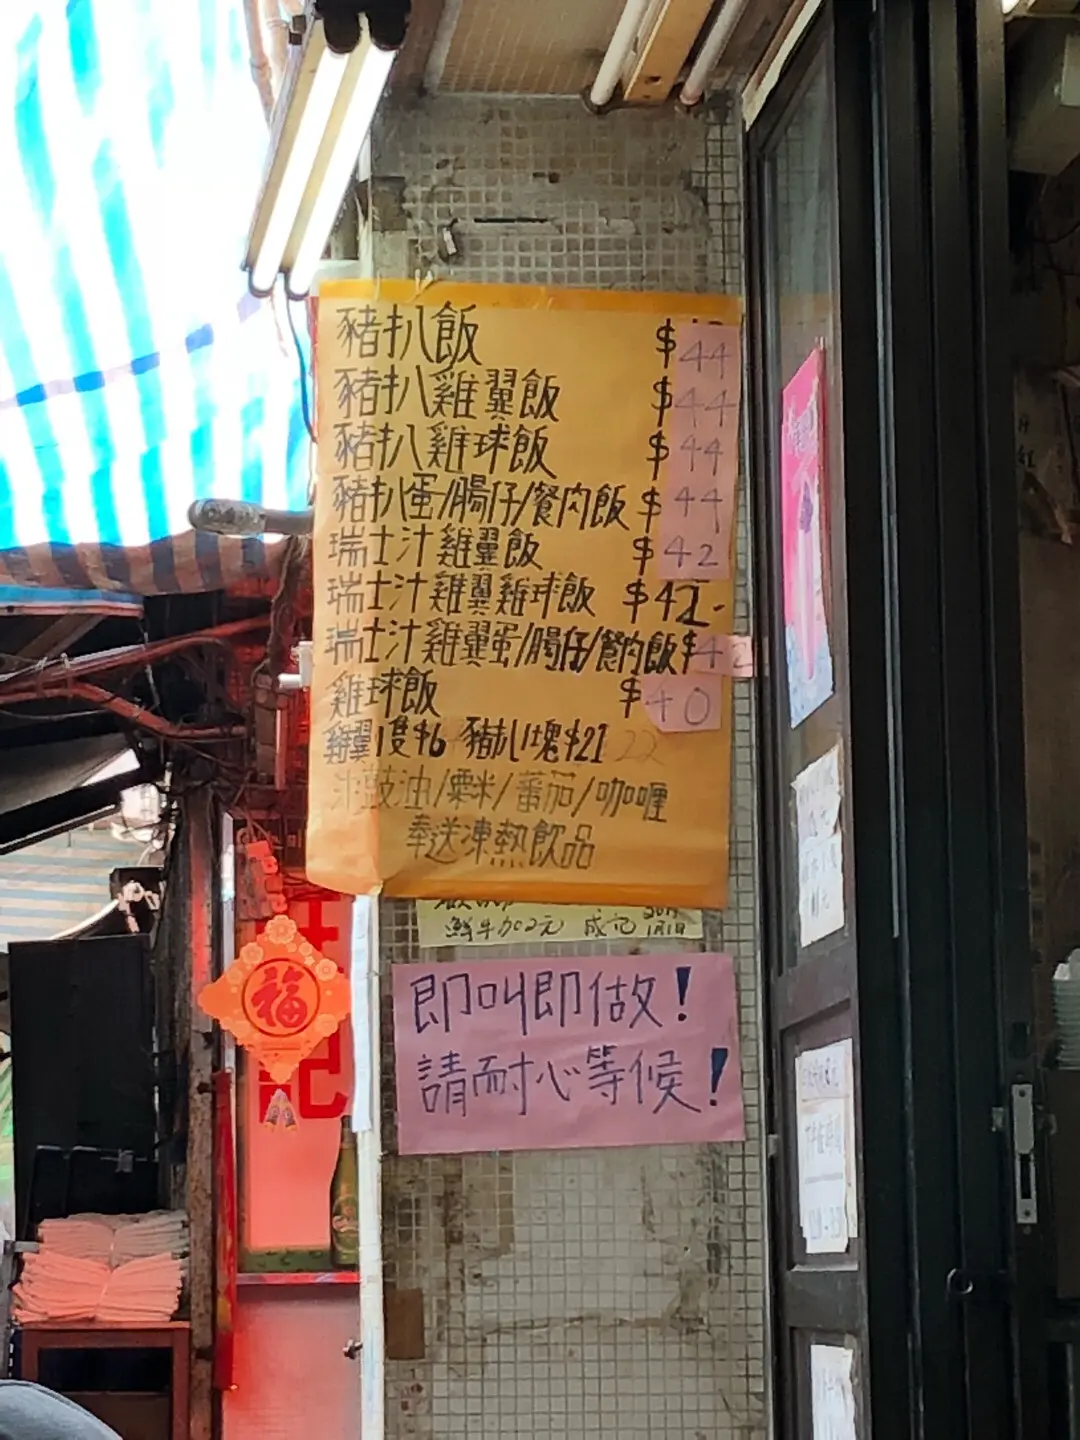 豬扒飯 $44
豬扒雞翼飯 $44
豬扒雞球飯 $44
豬扒蛋/腸仔/餐肉飯 $44
瑞士汁雞翼飯 $42
瑞士汁雞翼雞球飯 $42-
瑞士汁雞翼蛋/腸仔/餐肉飯 $42
雞球飯 $40
雞翼1隻$6 豬扒1塊$21 22
汁豉油/粟米/蕃茄/咖喱
奉送凍熱飲品
鮮牛加2元 成記
1月1日
即叫即做!
請耐心等候!
福
記